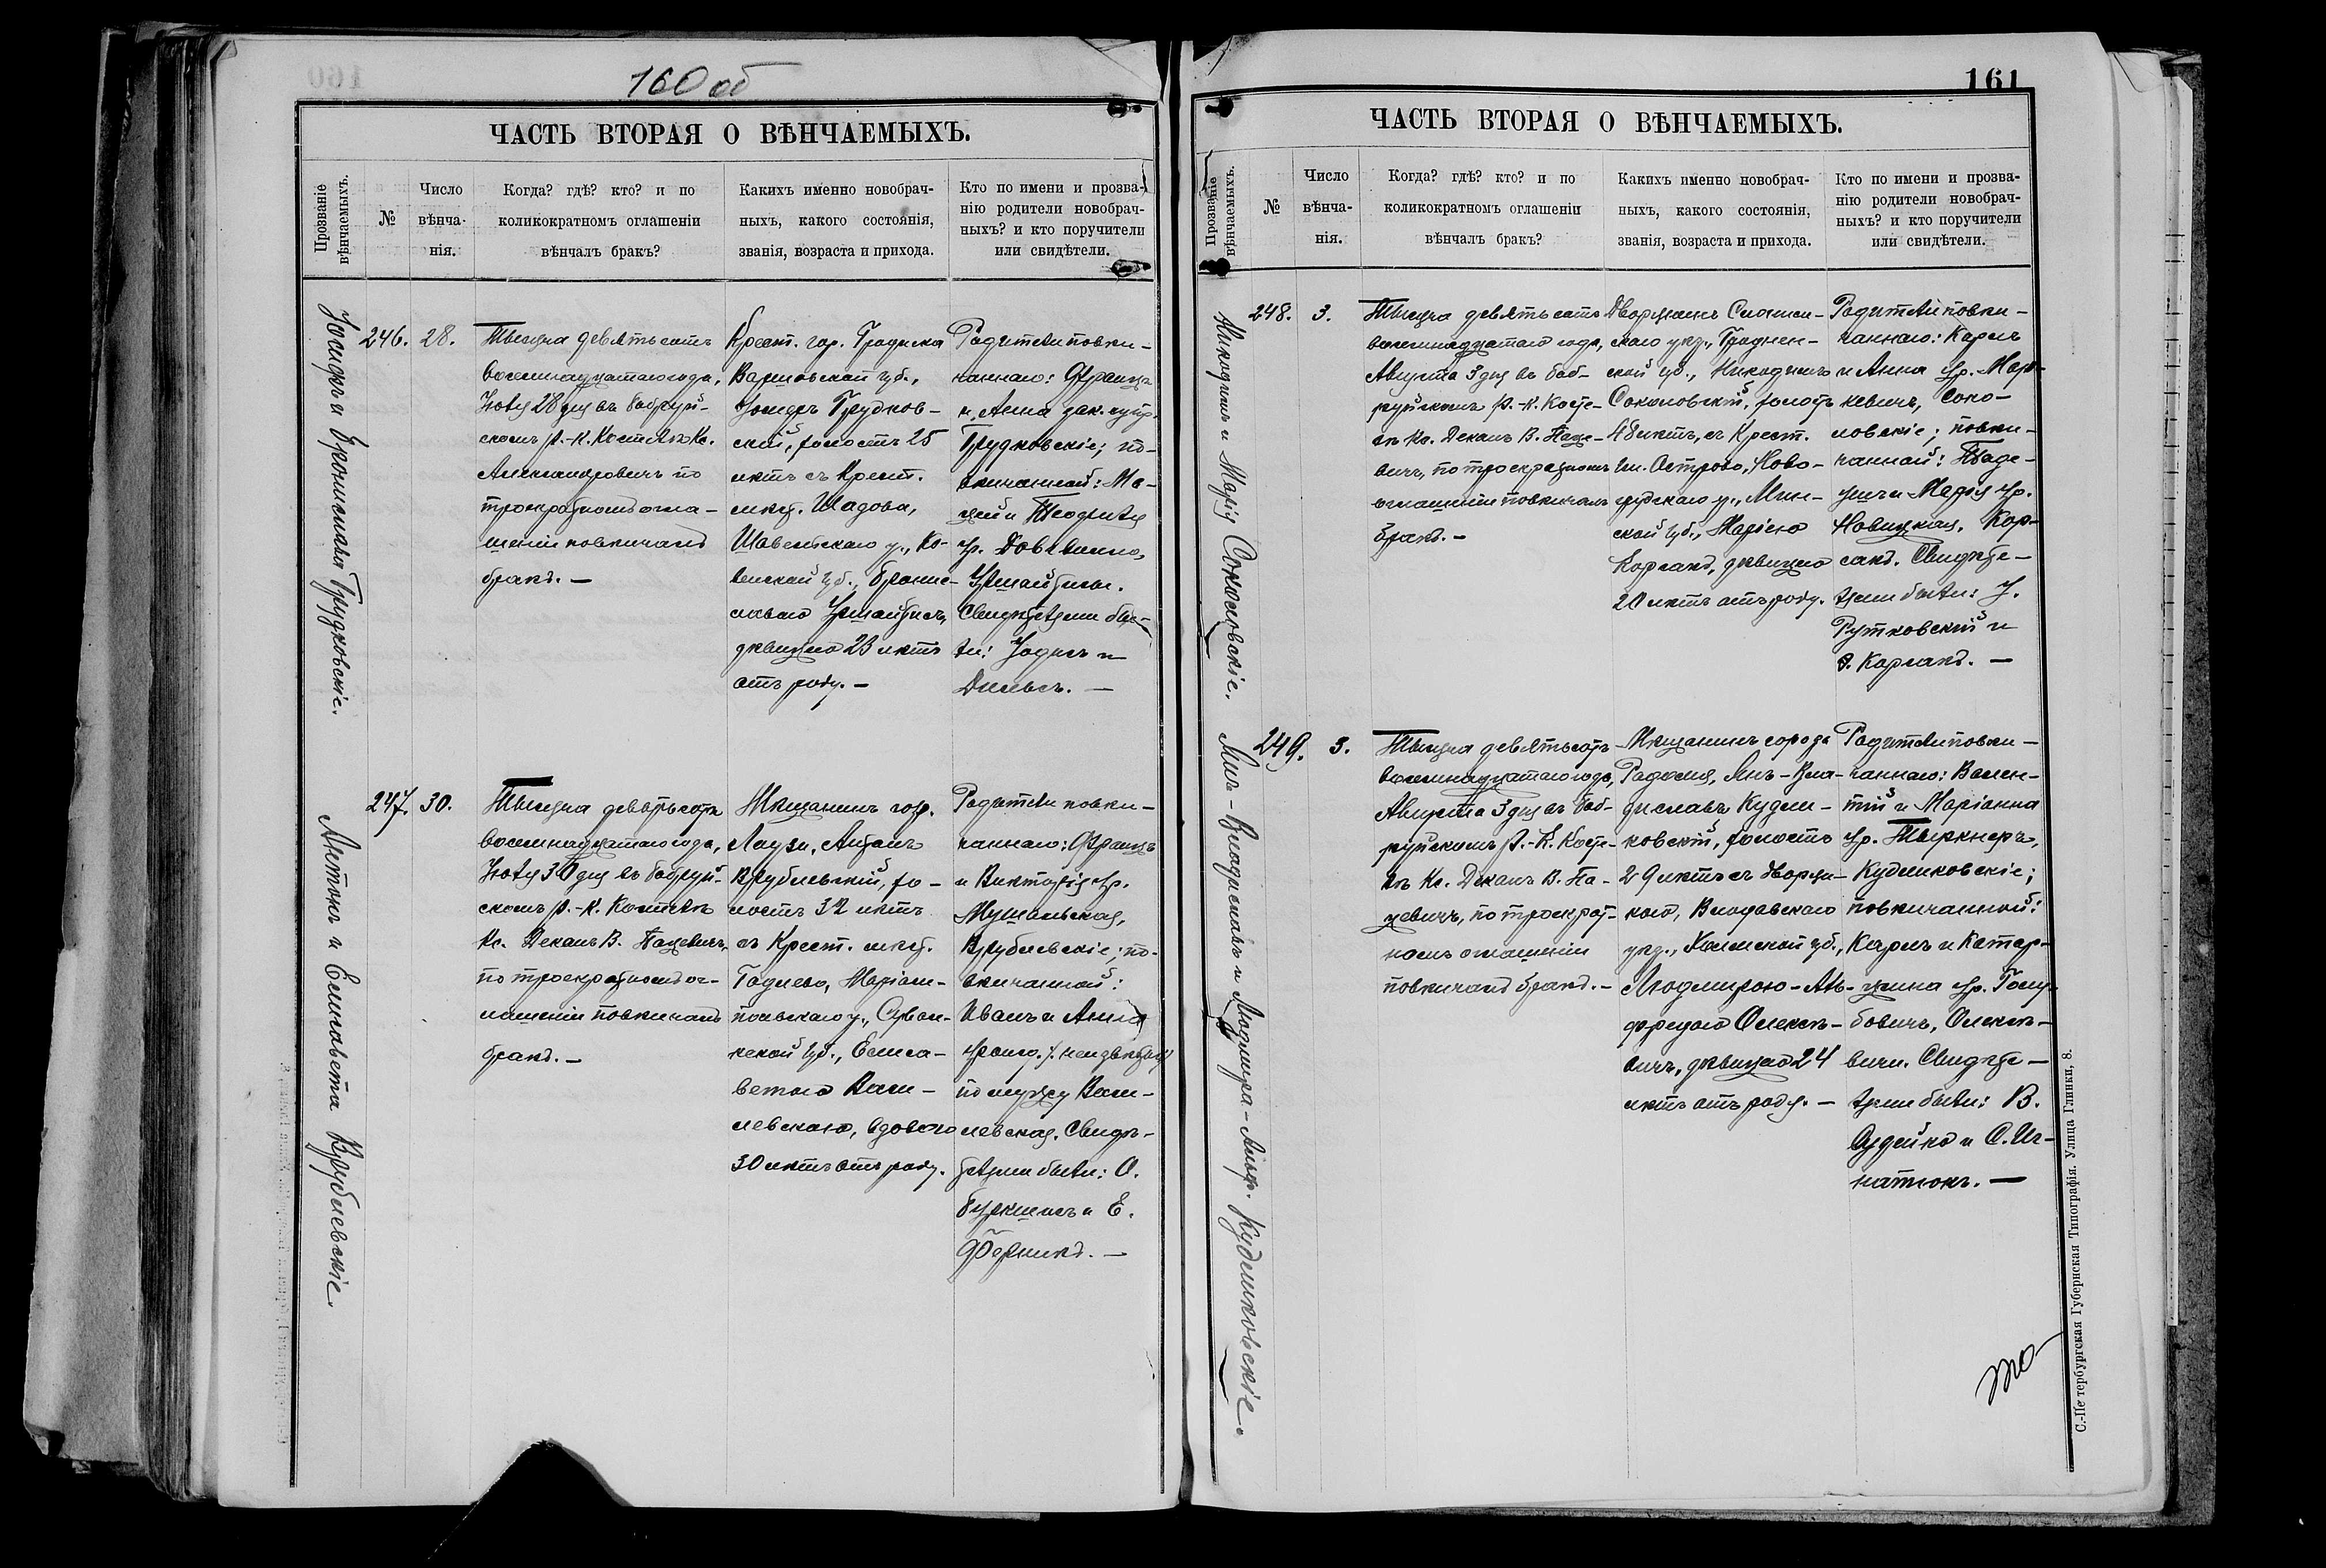 160 об
ЧАСТЬ ВТОРАЯ О ВѢНЧАЕМЫХЪ.
Прозваніе вѣнчаемыхъ.
№
Число вѣнча- нія.
Когда? гдѣ? кто? и по
коликократномъ оглашеніи
вѣнчалъ бракъ?
Какихъ именно новобрач-
ныхъ, какого состоянія,
званія, возраста и прихода.
Кто по имени и прозва-
нію родители новобрач-
ныхъ? и кто поручители
или свидѣтели.
Іосифъ и Брониславa Грудковскіе.
246. 28.
Тысяча девятьсотъ
восемнадцатаго года,
Іюля 28 дня въ Бобруй-
скомъ Р.-К. Костелѣ Кс.
Александровичъ по
троекратномъ огла-
шеніи повѣнчалъ
бракъ. —
Крест. гор. Гродиска
Варшавской губ.,
Іосифъ Грудков-
скій, холостъ 25
лѣтъ съ Крест.
мѣст. Шадова,
Шавельскаго у., Ко-
венской губ., Бронис-
лавою
дѣвицею 23 лѣтъ
отъ роду. —
Родители повѣн-
чаннаго: Францъ
и Анна зак. супр.
Грудковскіе; по-
вѣнчанной: Ма-
тей и Теофиля
ур. Довкшис
Свидѣтелями бы-
ли: Іодисъ и
Дильсъ. —
Антонъ и Елисавета Врублевскіе.
247. 30.
Тысяча девятьсотъ
восемнадцатаго года,
Іюля 30 дня въ Бобруй-
скомъ Р.-К. Костелѣ
Кс. Деканъ В. Пацевичъ,
по троекратномъ ог-
лашеніи повѣнчалъ
бракъ. —
Мѣщанинъ гор.
Лодзи, Антонъ
Врублевскій, хо-
лостъ 32 лѣтъ
съ Крест. мѣст.
Годлево, Маріам-
польскаго у., Сувал-
кской губ., Елиса-
ветою Васи-
левскою, вдовою
30 лѣтъ отъ роду.
Родители повѣн-
чаннаго: Францъ
и Викторія ур.
Мушальская,
Врублевскіе; по-
вѣнчанной:
Иванъ и Анна
по мужу Васи-
левская. Свидѣ-
телями были: О.
Буркшисъ и Е.
161
ЧАСТЬ ВТОРАЯ О ВѢНЧАЕМЫХЪ.
Прозваніе вѣнчаемыхъ.
№
Число вѣнча- нія.
Когда? гдѣ? кто? и по
коликократномъ оглашеніи
вѣнчалъ бракъ?
Какихъ именно новобрач-
ныхъ, какого состоянія,
званія, возраста и прихода.
Кто по имени и прозва-
нію родители новобрач-
ныхъ? и кто поручители
или свидѣтели.
Никодимъ и Марія Соколовскіе.
248. 3.
Тысяча девятьсотъ
восемнадцатаго года,
Августа 3 дня въ Боб-
руйскомъ Р.-К. Косте-
лѣ Кс. Деканъ В. Паце-
вичъ, по троекратномъ
оглашеніи повѣнчалъ
бракъ. —
Дворянинъ Слоним-
скаго уѣз., Гроднен-
ской губ., Никодимъ
Соколовскій, холостъ
лѣтъ, съ Крест.
им. Острово, Ново-
грудскаго у., Мин-
ской губ., Маріею
Корсакъ, дѣвицею
20 лѣтъ отъ роду.
Родители повѣн-
чаннаго: Карлъ
и Анна ур. Мар-
кевичъ, Соко-
ловскіе; повѣн-
чанной: Таде-
ушъ и Марія ур.
Новицкая, Кор-
сакъ. Свидѣте-
лями были: І.
Рутковскій и
Корсакъ. —
Янъ-Владиславъ и Людмира-Альф. Кудликовскіе.
249. 3.
Тысяча девятьсотъ
восемнадцатаго года,
Августа 3 дня въ Боб-
руйскомъ Р.-К. Косте-
лѣ Кс. Деканъ В. Па-
цевичъ, по троекрат-
номъ оглашеніи
повѣнчалъ бракъ. —
Мѣщанинъ города
Радомя, Янъ-Вла-
диславъ Кудли-
ковскій, холостъ
29 лѣтъ съ Дворян-
кою, Влодавскаго
уѣз., Холмской губ.,
Людмирою-Аль-
фредою Олехно-
вичъ, дѣвицею 24
лѣтъ отъ роду. —
Родители повѣн-
чаннаго: Вален-
тій и Маріанна
ур. Тыркнеръ,
Кудликовскіе;
повѣнчанной:
Карлъ и Катар-
жина ур.
Свидѣте-
лями были: В.
Судейко и С. Иг-
натюкъ. —
С.-Петербургская Губернская Типографія. Улица Глинки, 8.